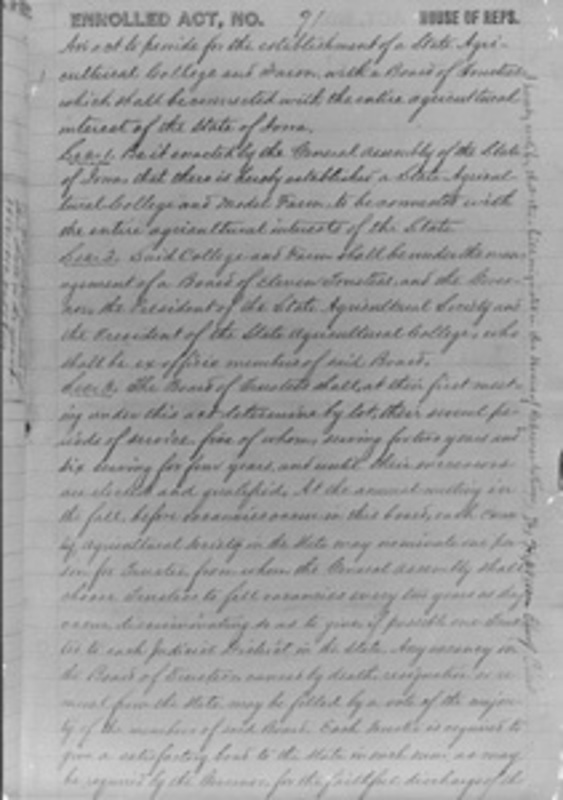 ENROLLED ACT, NO. 91 HOUSE OF REPS.
An act to provide for the establishment of a State Agri-
cultural College and Farm, with a Board of Trustees
which shall be connected with the entire agricultural
interest of the State of Iowa.
Sec. 1. Be it enacted by the General Assembly of the State
of Iowa, that there is hereby established a State Agricul-
tural College and Model Farm, to be connected with
the entire agricultural interests of the State
Sec. 2. Said College and Farm shall be under the man-
agement of a Board of Eleven Trustees, and the Gover-
nor, the President of the State Agricultural Society and
the President of the State Agricultural College, who
shall be ex officio members of said Board.
The Board of Trustees shall, at their first meet-
ing under this act determine by lot, their several pe-
riods of service, five of whom, serving for two years and
six serving for four years, and until their successors
are elected and qualified. At the annual meeting in
the fall, before vacancies occur in this board, each coun-
ty Agricultural Society in the State may nominate one per-
son for Trustee, from whom the General Assembly shall
choose Trustees to fill vacancies every two years as they
occur, discriminating so as to give, if possible one Trus-
tee to each Judicial District in the State. Any vacancy in
the Board of Trustees caused by death, resignation or re-
moval from the State, may be filled by a vote of the major-
ity of the members of said Board. Each trustee is required to
give a satisfactory bond to the State in such sum as may
be required by the Governor, for the faithful discharge of the